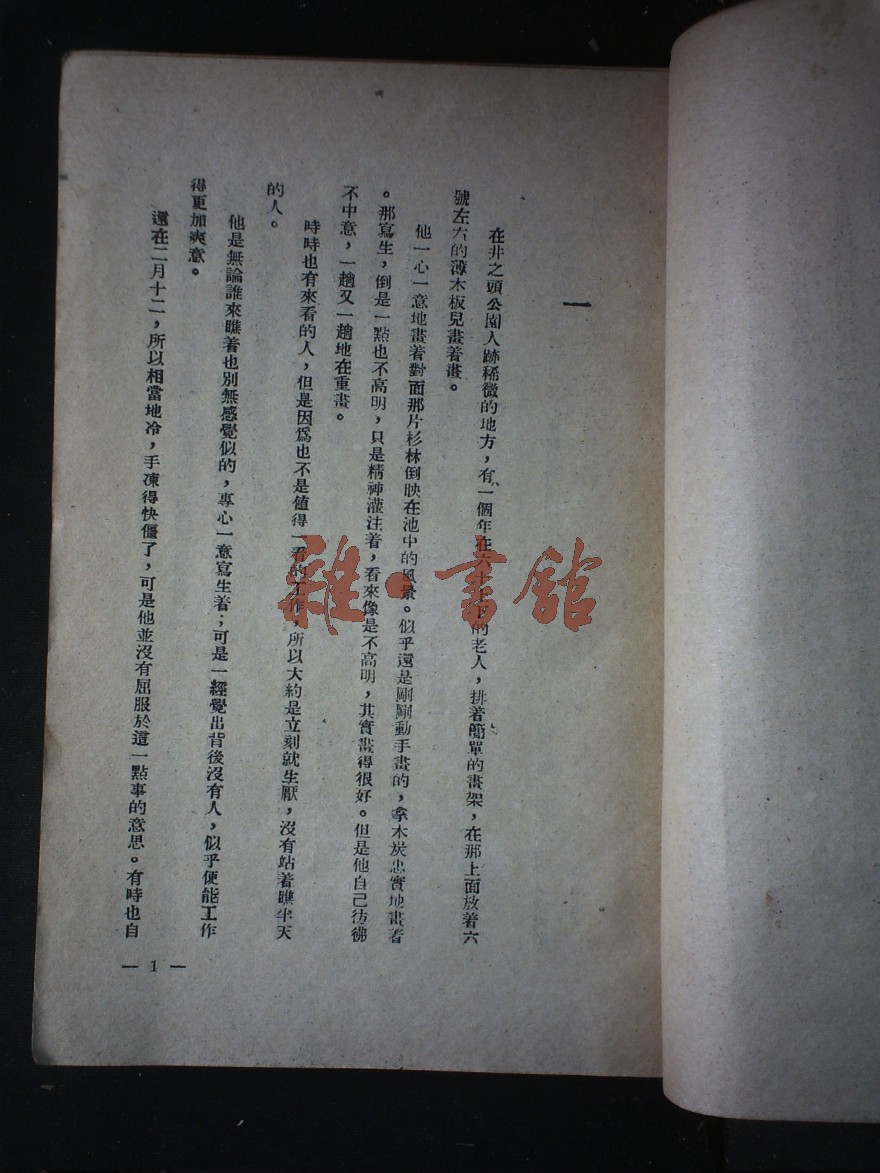 一
在井之頭公園人跡稀微的地方，有一個年在六十上下的老人，排着簡單的畫架，在那上面放着六
號左右的薄木板兒畫着畫。
他一心一意地畫着對面那片杉林倒映在池中的風景。似乎還是剛剛動手畫的，拿木炭忠實地畫着
。那寫生，倒是一點也不高明，只是精神灌注着，看來像是不高明，其實畫得很好。但是他自己彷彿
不中意，一趟又一趟地在重畫。
時時也有來看的人，但是因爲也不是値得一看的工作，所以大約是立刻就生厭，沒有站着瞧半天
的人。
他是無論誰來瞧着也別無感覺似的，專心一意寫生着；可是一經覺出背後沒有人，似乎便能工作
得更加爽意。
還在二月十二，所以相當地冷，手凍得快僵了，可是他並沒有屈服於這一點事的意思。有時也自
— 1 —
雜·書館